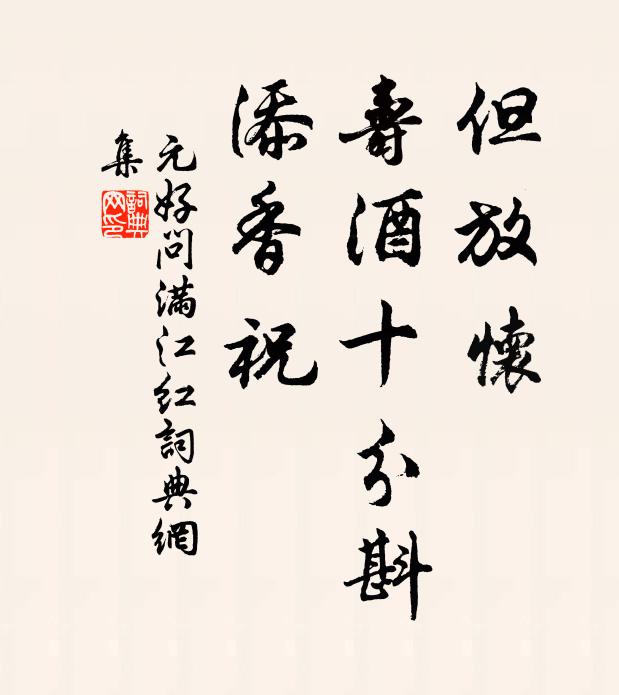 但放懷
壽酒十分斟
添香祝
元好问满江红詞典網
集
詞典
网印